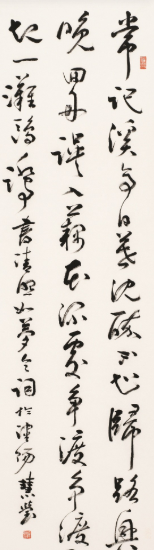 常記溪亭日暮沈醉不知歸路興
晚回舟誤入藕花深處爭渡爭渡
起一灘鷗鷺 書清照如夢令詞於津沽